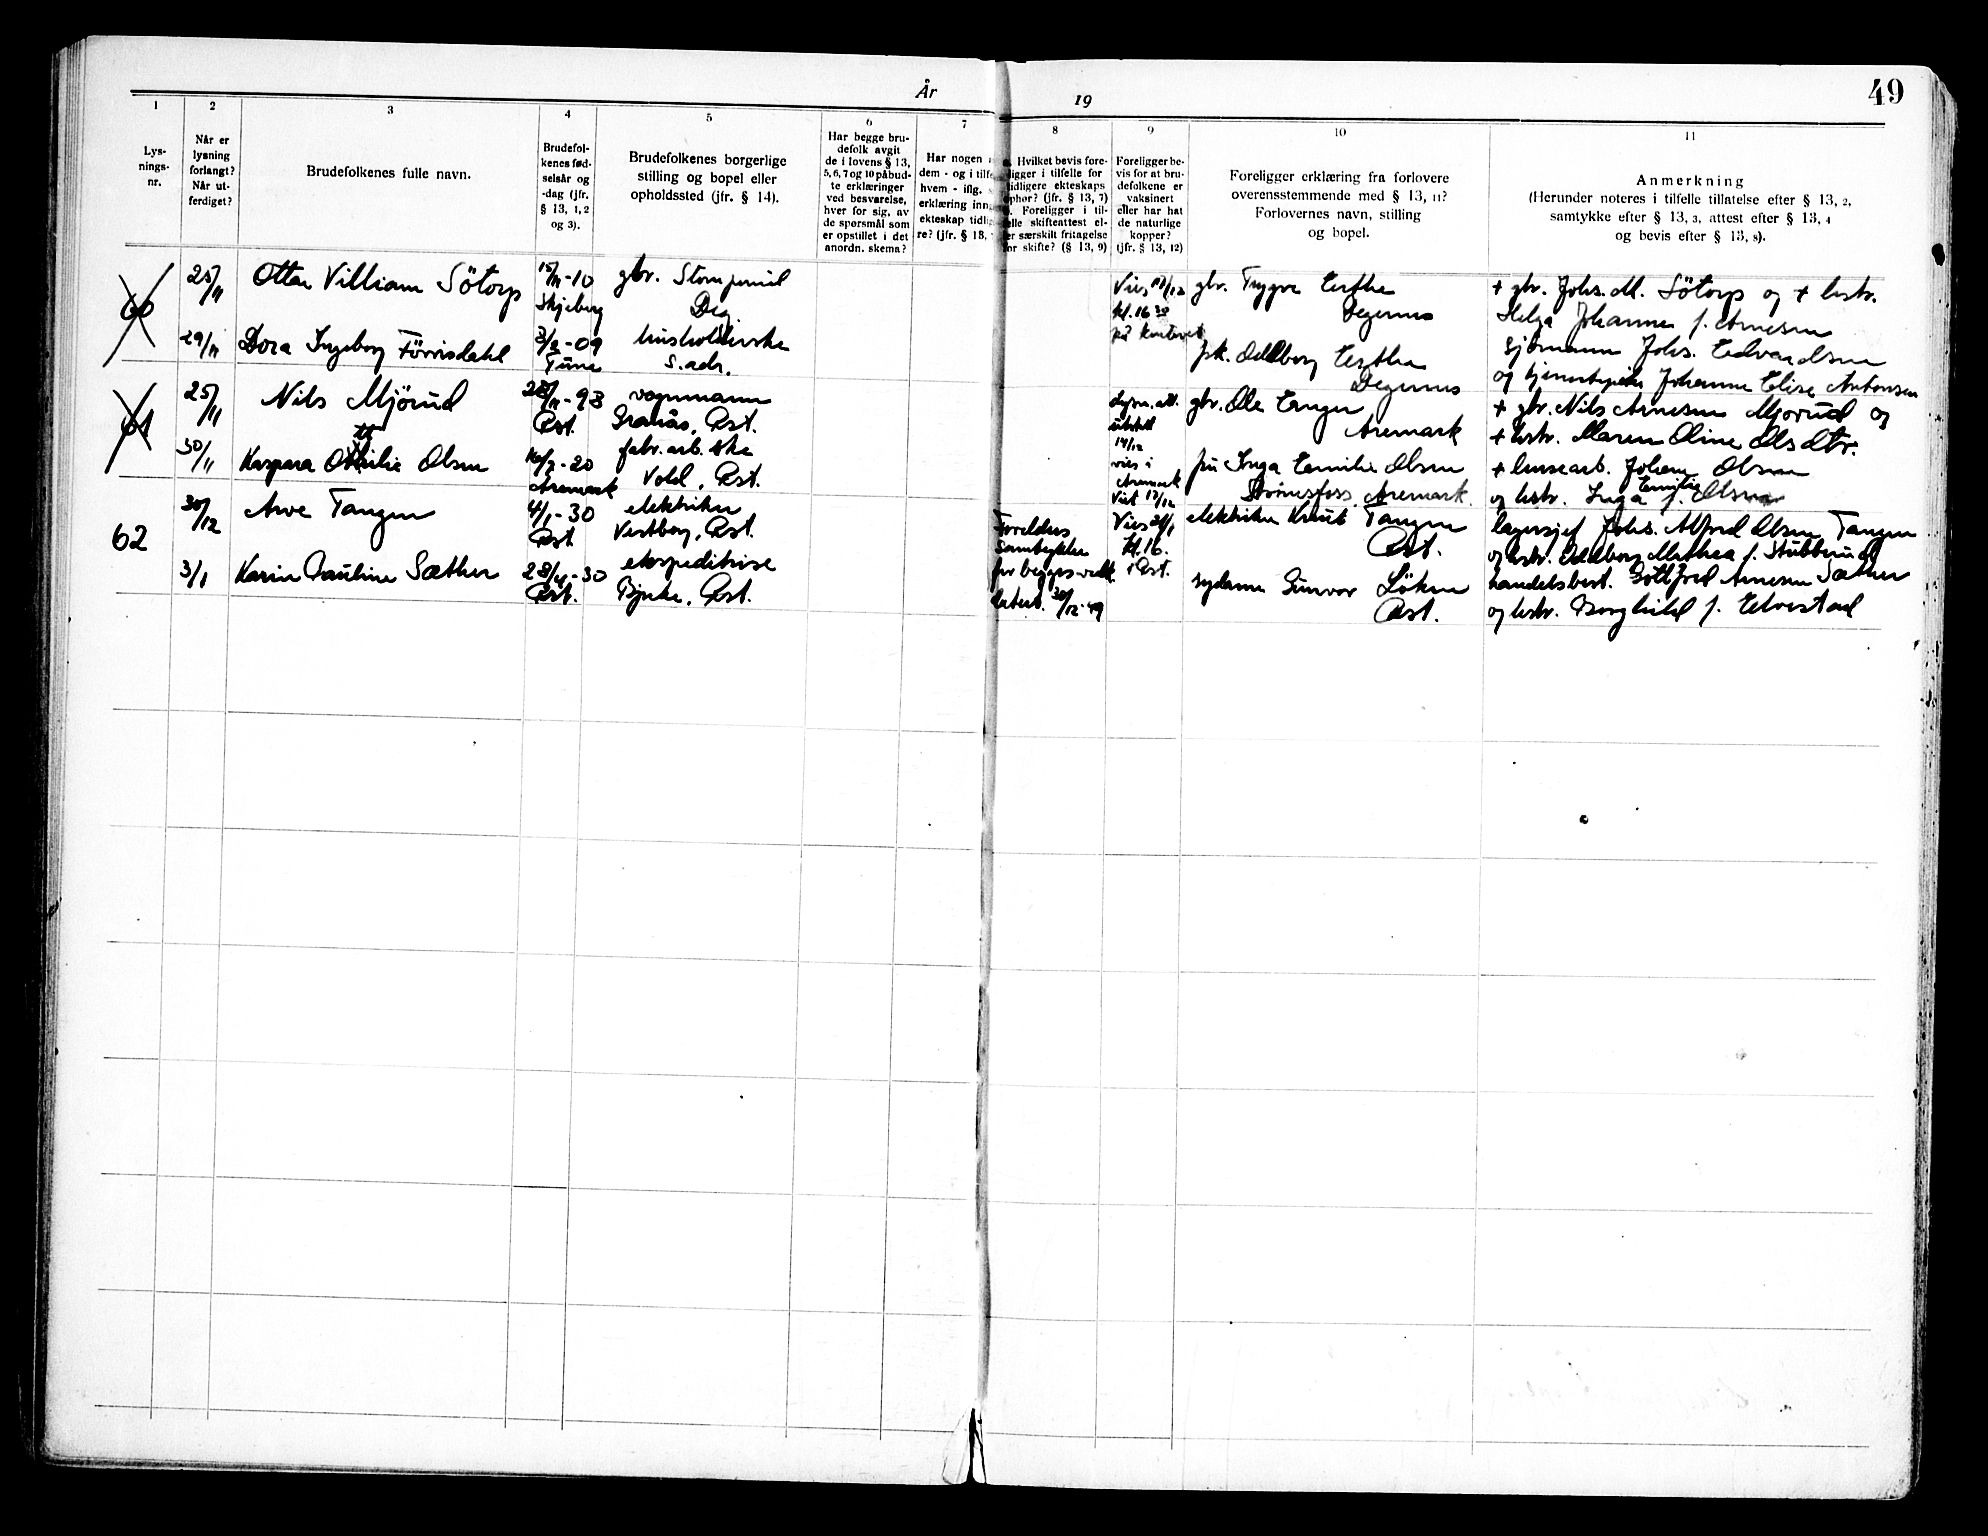 År 19
49
1
Lys-
nings-
nr.
2
Når er
lysning
forlangt?
Når ut-
ferdiget?
3
Brudefolkenes fulle navn.
4
Brudefol-
kenes fød-
selsår og
-dag (jfr.
§ 13, 1,2
og 3).
5
Brudefolkenes borgerlige
stilling og bopel eller
opholdssted (jfr. § 14).
6
Har begge bru-
defolk avgit
de i lovens § 13,
5, 6, 7 og 10 påbud-
te erklæringer
ved besvarelse,
hver for sig, av
de spørsmål som
er opstillet i det
anordn. skema?
7
Har nogen
dem - og i tilfe
hvem - iflg.
erklæring inng
ekteskap tidlig
re? (jfr. § 13,
8
Hvilket bevis fore-
ligger i tilfelle for
tidligere ekteskaps
ophør? (jfr. § 13, 7)
Foreligger i til-
felle skifteattest el-
er særskilt fritagelse
for skifte? (§ 13, 9)
9
Foreligger be-
vis for at bru-
defolkene er
vaksinert
eller har hat
de naturlige
kopper?
(jfr. § 13, 12)
10
Foreligger erklæring fra forlovere
overensstemmende med § 13, 11?
Forlovernes navn, stilling
og bopel.
11
Anmerkning
(Herunder noteres i tilfelle tillatelse efter § 13, 2,
samtykke efter § 13, 3, attest efter § 13, 4
og bevis efter § 13, 8).
60
25/11
Otto Villiam Sötorp
15/11-10
Skjeberg
gbr.
Deg.
29/11
Dora Ingeborg Förrisdahl
3/2-09
Tune
husholderske
s. adr.
Vies 17/12
kl. 16 30
på kontoret
gbr. Trygve Ertha
Degernes
frk. Oddborg Ertha
Degernes
+ gbr. Johs. M. Sötorp og + hstr.
Helga Johanne f. Arnesen
sjømann Johs. Edvardsen
og tjenestepike Johanne Elise Antonsen
61
25/11
Nils Mjørud
28/11-93
Rst.
vognmann
Granås, Rst.
30/11
Kaspara Ottilie Olsen
16/7-20
Aremark
fabr.arb.ske
Vold, Rst.
utstedt
14/12
vies i
Aremark
Viet 17/12
gbr. Ole Enger
Aremark
fru Inga Emilie Olsen
Strömsfoss, Aremark.
+ gbr. Nils Arnesen Mjørud og
+ hstr. Maren Oline Olsdtr.
+ brusearb. Johan Olsen
og hstr. Inga Emilie f. Olsen
62
30/12
Arve Tangen
4/1-30
Rst
elektriker
Vestborg, Rst.
3/1
Karin Pauline Sæther
28/4-30
Rst.
ekspeditrise
Bjerke, Rst.
Foreldres
Samtykke
for begges vedk.
datert. 30/12-49
Vies 21/1
kl. 16.
i Rst.
elektriker Knut Tangen
Rst.
sydame Gunvor Löken
Rst.
lagersjef Johs. Alfred Olsen Tangen
og hstr. Oddborg Mathea f. Stubberud
handelsbest. Gottfred Arnesen Sæther
og hstr. Borghild f. Elvestad